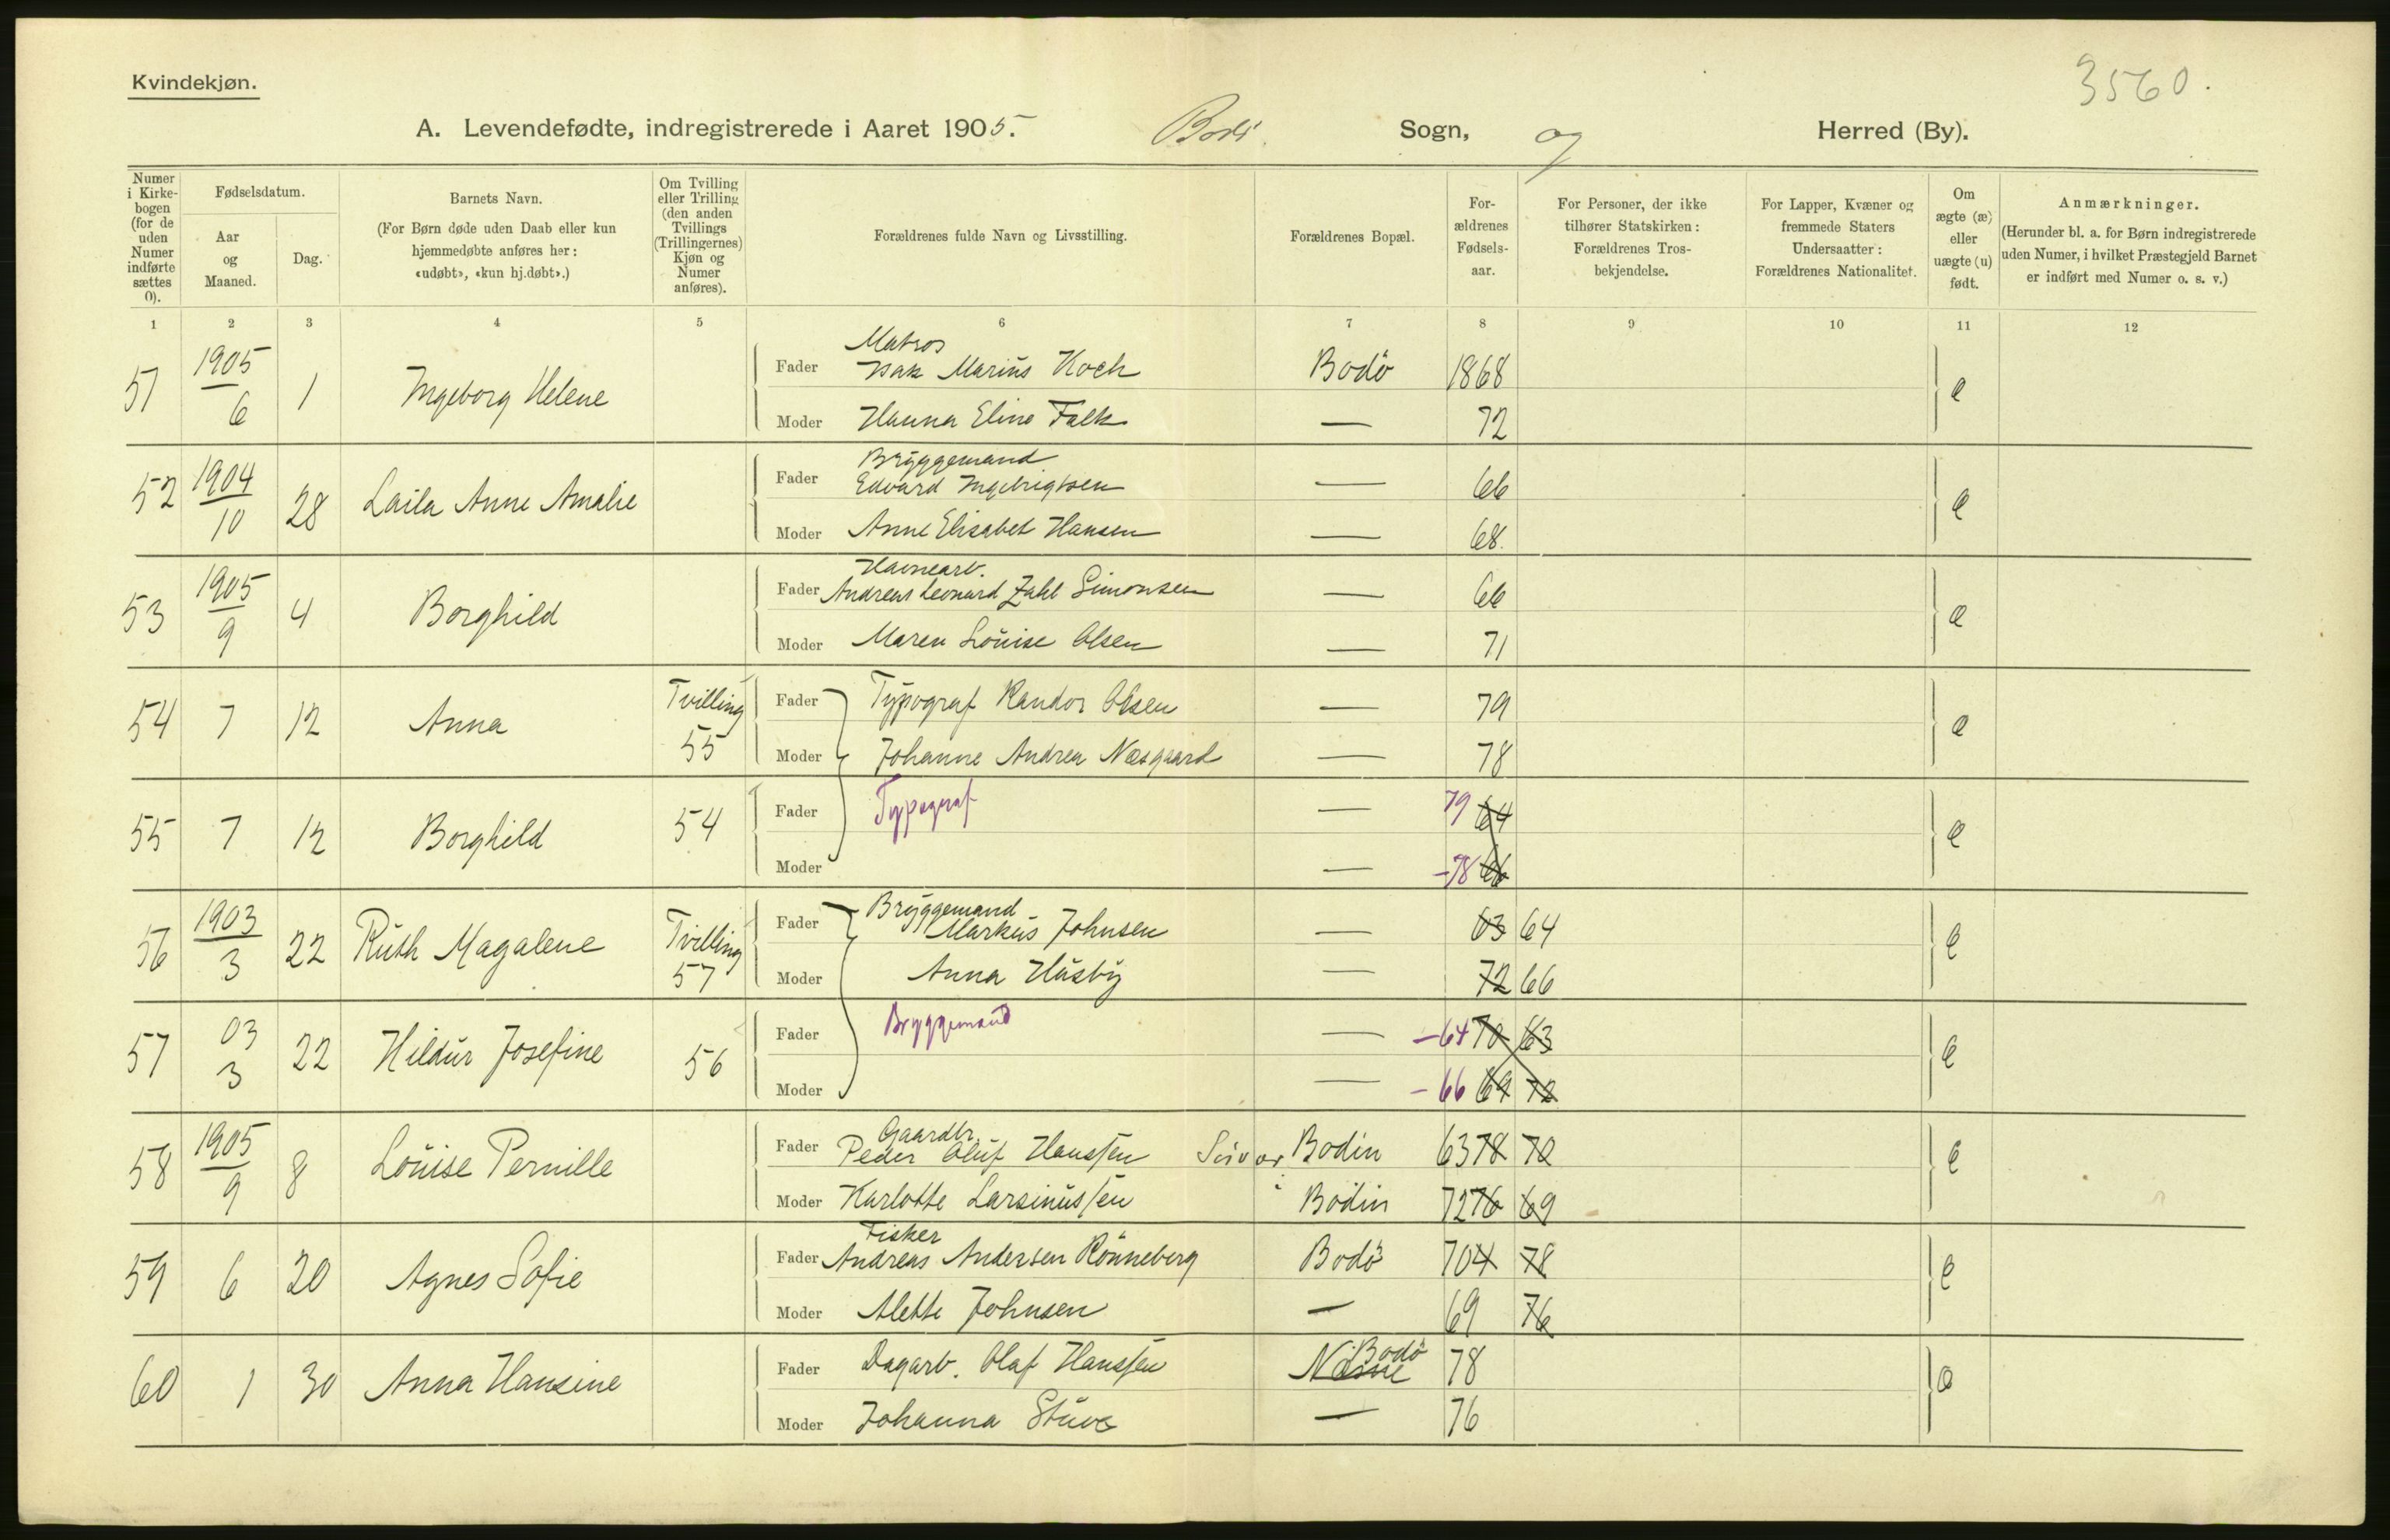 Kvindekjøn.
3560.
A. Levendefødte, indregistrerede i Aaret 1905. Bodø Sogn, og Herred (By).
Numer i Kirkebogen (for de uden Numer indførte sættes 0).
Fødselsdatum.
Aar og Maaned.
Dag.
Barnets Navn.
(For Børn døde uden Daab eller kun hjemmedøbte anføres her: «udøbt», «kun hj.døbt».)
Om Tvilling eller Trilling (den anden Tvillings (Trillingernes) Kjøn og Numer anføres).
Forældrenes fulde Navn og Livsstilling.
Forældrenes Bopæl.
Forældrenes Fødselsaar.
For Personer, der ikke tilhører Statskirken: Forældrenes Trosbekjendelse.
For Lapper, Kvæner og fremmede Staters Undersaatter: Forældrenes Nationalitet.
Om ægte (æ) eller uægte (u) født.
Anmærkninger.
(Herunder bl. a. for Børn indregistrerede uden Numer, i hvilket Præstegjeld Barnet er indført med Numer o. s. v.)
1 2 3 4 5 6 7 8 9 10 11 12
51 1905 6 1 Ingeborg Helene Fader Matros Isak Marius Koch Bodø 1868 æ
Moder Hanna Eline Falk — 72
52 1904 10 28 Laila Anne Amalie Fader Bryggemand Edvard Ingebrigtsen — 66 æ
Moder Anne Elisabet Hansen — 68.
53 1905 9 4 Borghild Fader Havnearb. Andreas Leonard Zahl Simonsen — 66 æ
Moder Maren Louise Olsen — 71
54 7 12 Anna Tvilling 55 Fader Typograf Randor Olsen — 79 æ
Moder Johanne Andrea Næsgaard — 78
55 7 12 Borghild 54 Fader Typograf — 79 64 æ
Moder — -78 66
56 1903 3 22 Ruth Magalene Tvilling 57 Fader Bryggemand Markus Johnsen — 63 64 æ
Moder Anna Husby — 72 66
57 03 3 22 Hildur Josefine 56 Fader Bryggemand — -64 70 63 æ
Moder — -66 69 72
58 1905 9 8 Louise Pernille Fader Gaardbr. Peder Oluf Hanssen Bodin 63 78 70 æ
Moder Karlotte Larsinussen Bodin 72 76 69
59 6 20 Agnes Sofie Fader Fisker Andreas Andersen Rönneberg Bodø 70 4 78 æ
Moder Alette Johnsen — 69 76
60 1 30 Anna Hansine Fader Dagarb. Olaf Hanssen Næsne Bodø 78 æ
Moder Johanna Stuve — 76